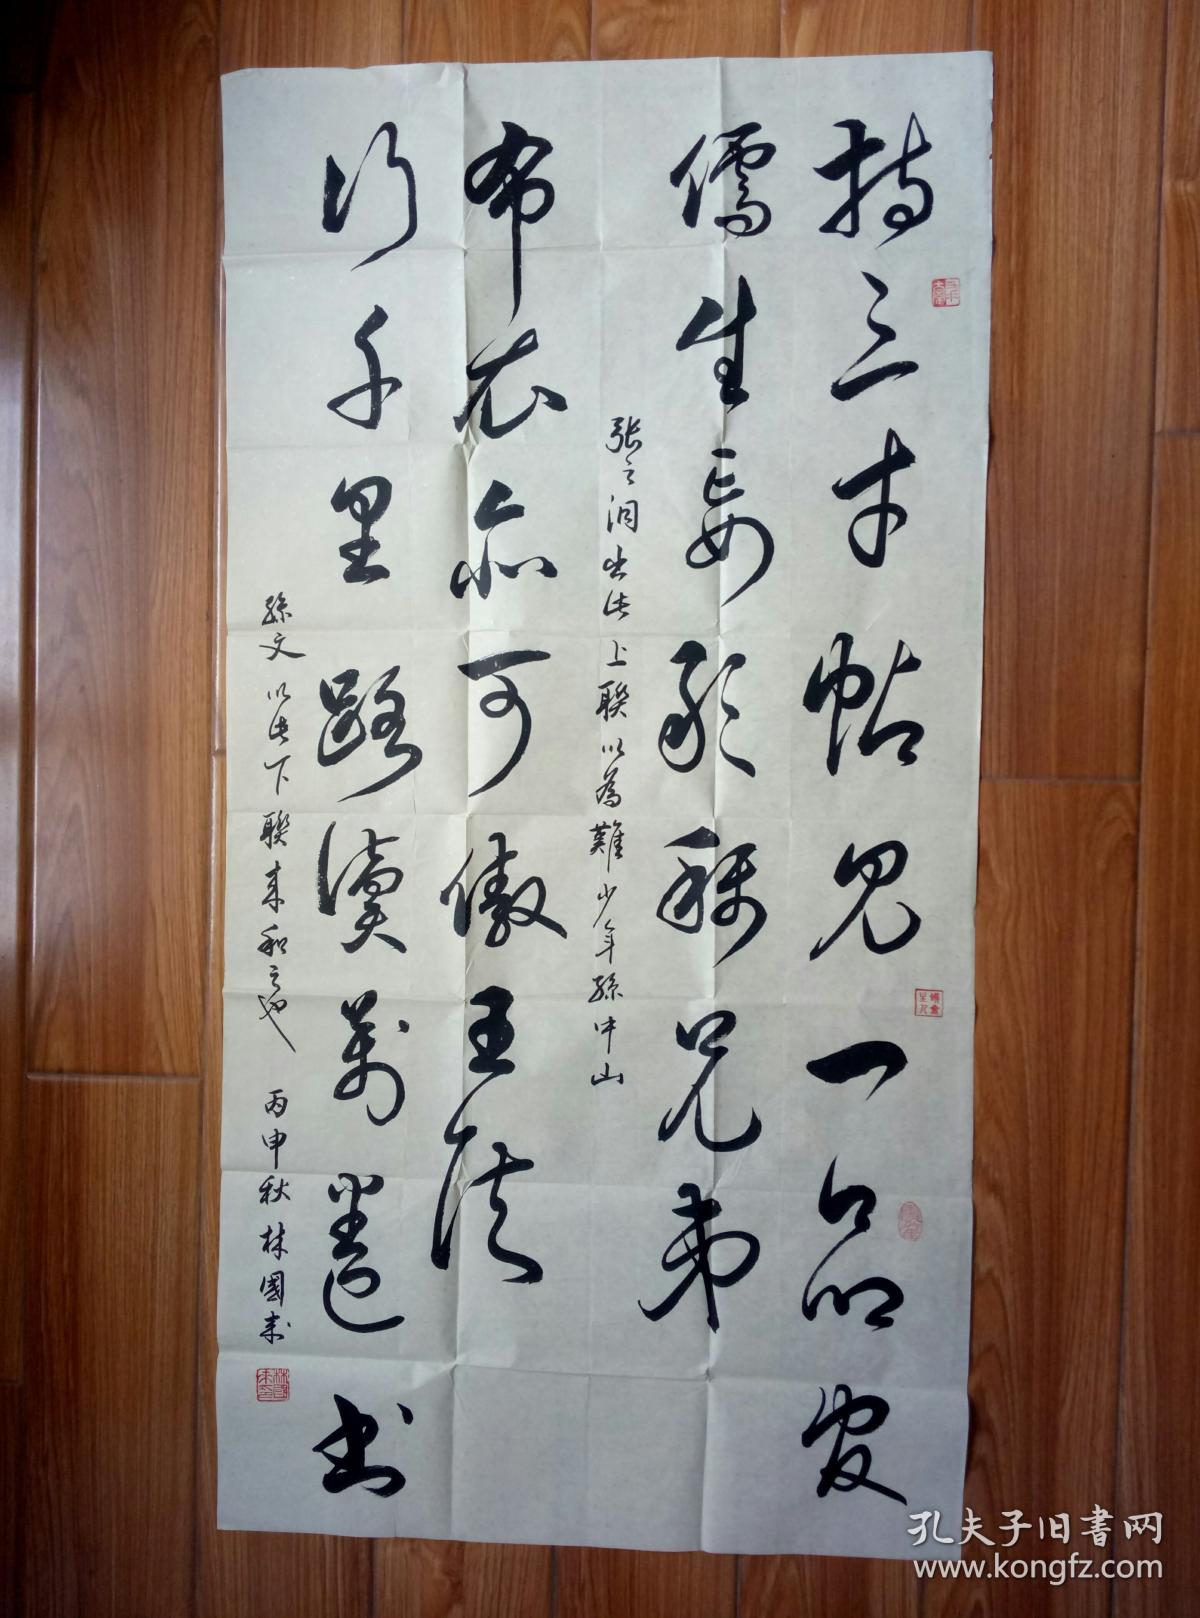 持三寸帖見一品官
儒生妄敢稱兄弟
張之洞出此上聯以為難少年孫中山
布衣亦可傲王侯
行千里路讀萬卷書
孫文以此下聯来和之也 丙申秋 林國来
孔夫子旧書网
www.kongfz.com